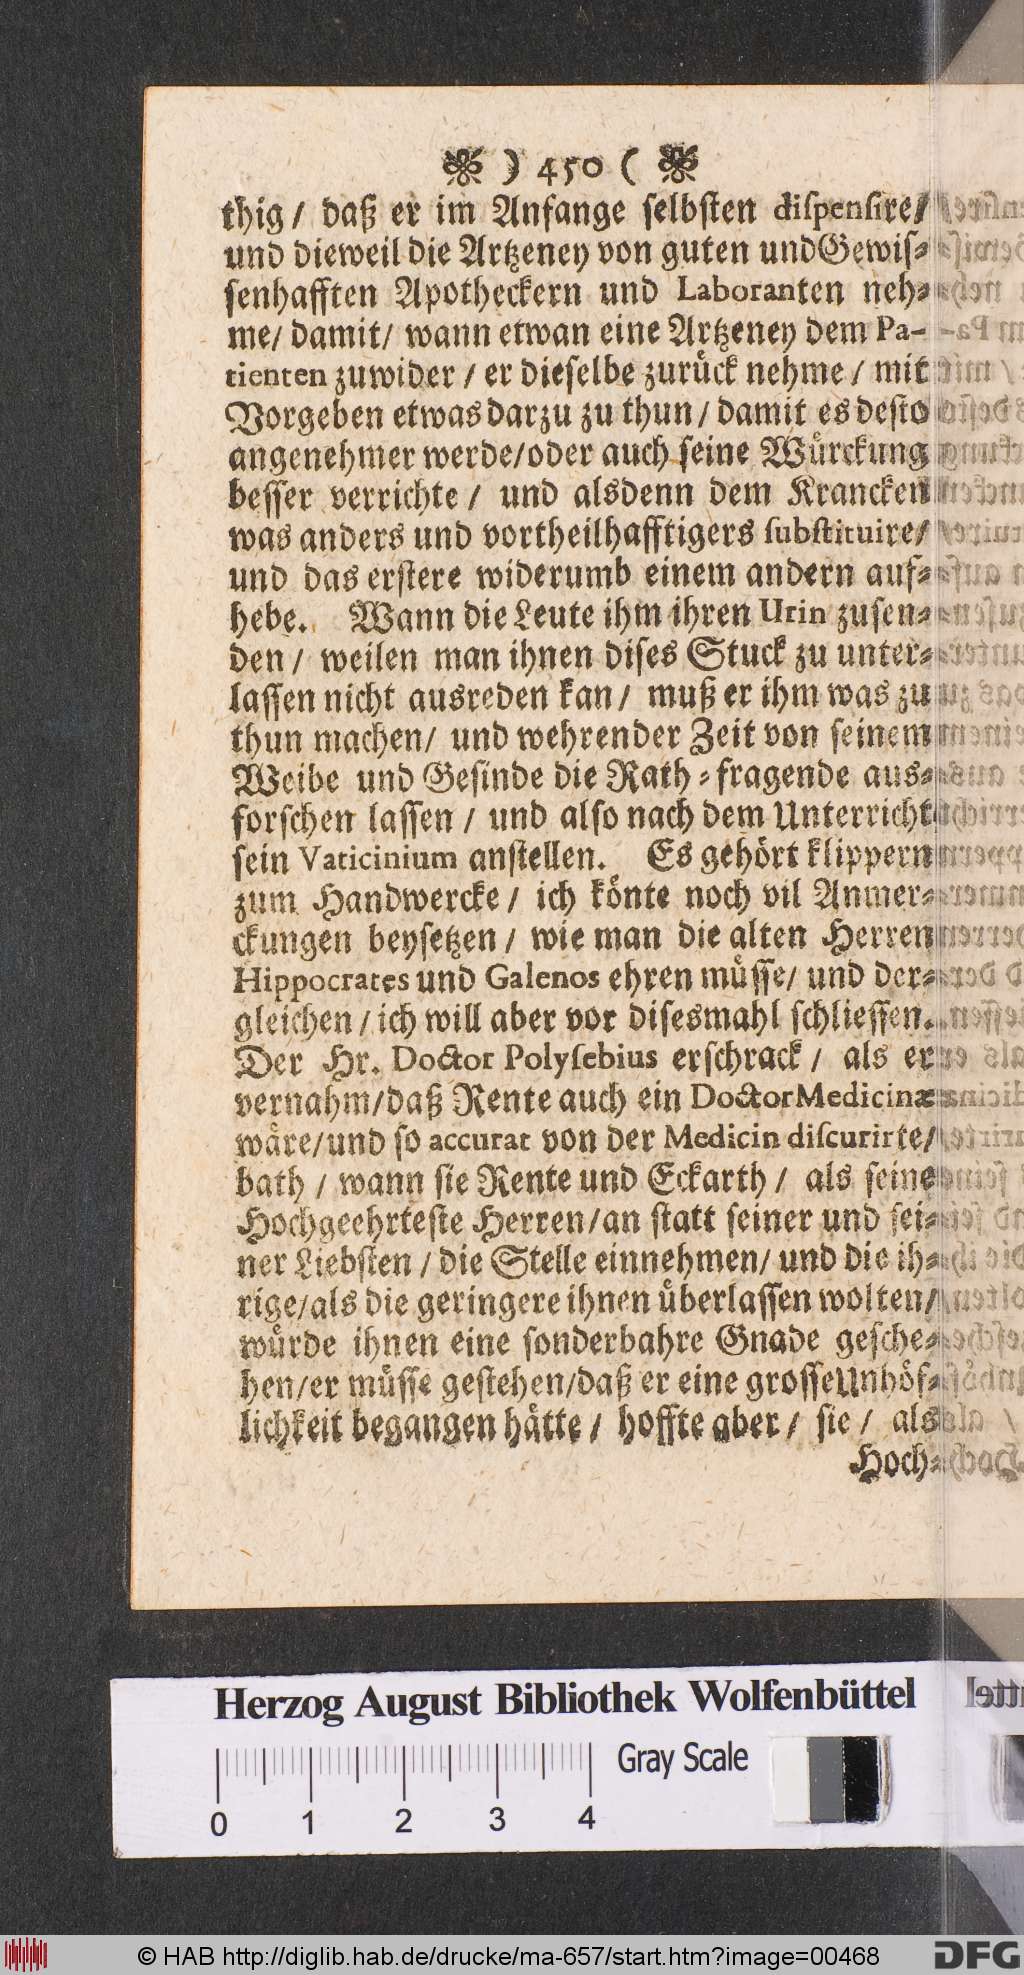 ) 450 (
thig / daß er im Anfange selbsten dispensire/
und dieweil die Artzeney von guten und Gewis-
senhafften Apotheckern und Laboranten neh-
me/ damit/ wann etwan eine Artzeney dem Pa-
tienten zuwider / er dieselbe zurück nehme / mit
Vorgeben etwas darzu zu thun / damit es desto
angenehmer werde/oder auch seine Würckung
besser verrichte / und alsdenn dem Krancken
was anders und vortheilhafftigers substituire/
und das erstere widerumb einem andern auf-
hebe. Wann die Leute ihm ihren Urin zusen-
den / weilen man ihnen dises Stuck zu unter-
lassen nicht ausreden kan / muß er ihm was zu
thun machen/ und wehrender Zeit von seinem
Weibe und Gesinde die Rath-fragende aus-
forschen lassen / und also nach dem Unterricht
sein Vaticinium anstellen. Es gehört klippern
zum Handwercke / ich könte noch vil Anmer-
ckungen beysetzen / wie man die alten Herren
Hippocrates und Galenos ehren müsse/ und der-
gleichen / ich will aber vor disesmahl schliessen.
Der Hr. Doctor Polysebius erschrack / als er
vernahm/daß Rente auch ein Doctor Medicinæ
wäre/und so accurat von der Medicin discurirte/
bath / wann sie Rente und Eckarth / als seine
Hochgeehrteste Herren/an statt seiner und sei-
ner Liebsten / die Stelle einnehmen/ und die ih-
rige/als die geringere ihnen überlassen wolten/
würde ihnen eine sonderbahre Gnade gesche-
hen/er müsse gestehen/daß er eine grosse Unhöf-
lichkeit begangen hätte / hoffte aber / sie / als
Hoch-
Herzog August Bibliothek Wolfenbüttel
Gray Scale
0 1 2 3 4
© HAB http://diglib.hab.de/drucke/ma-657/start.htm?image=00468
DFG